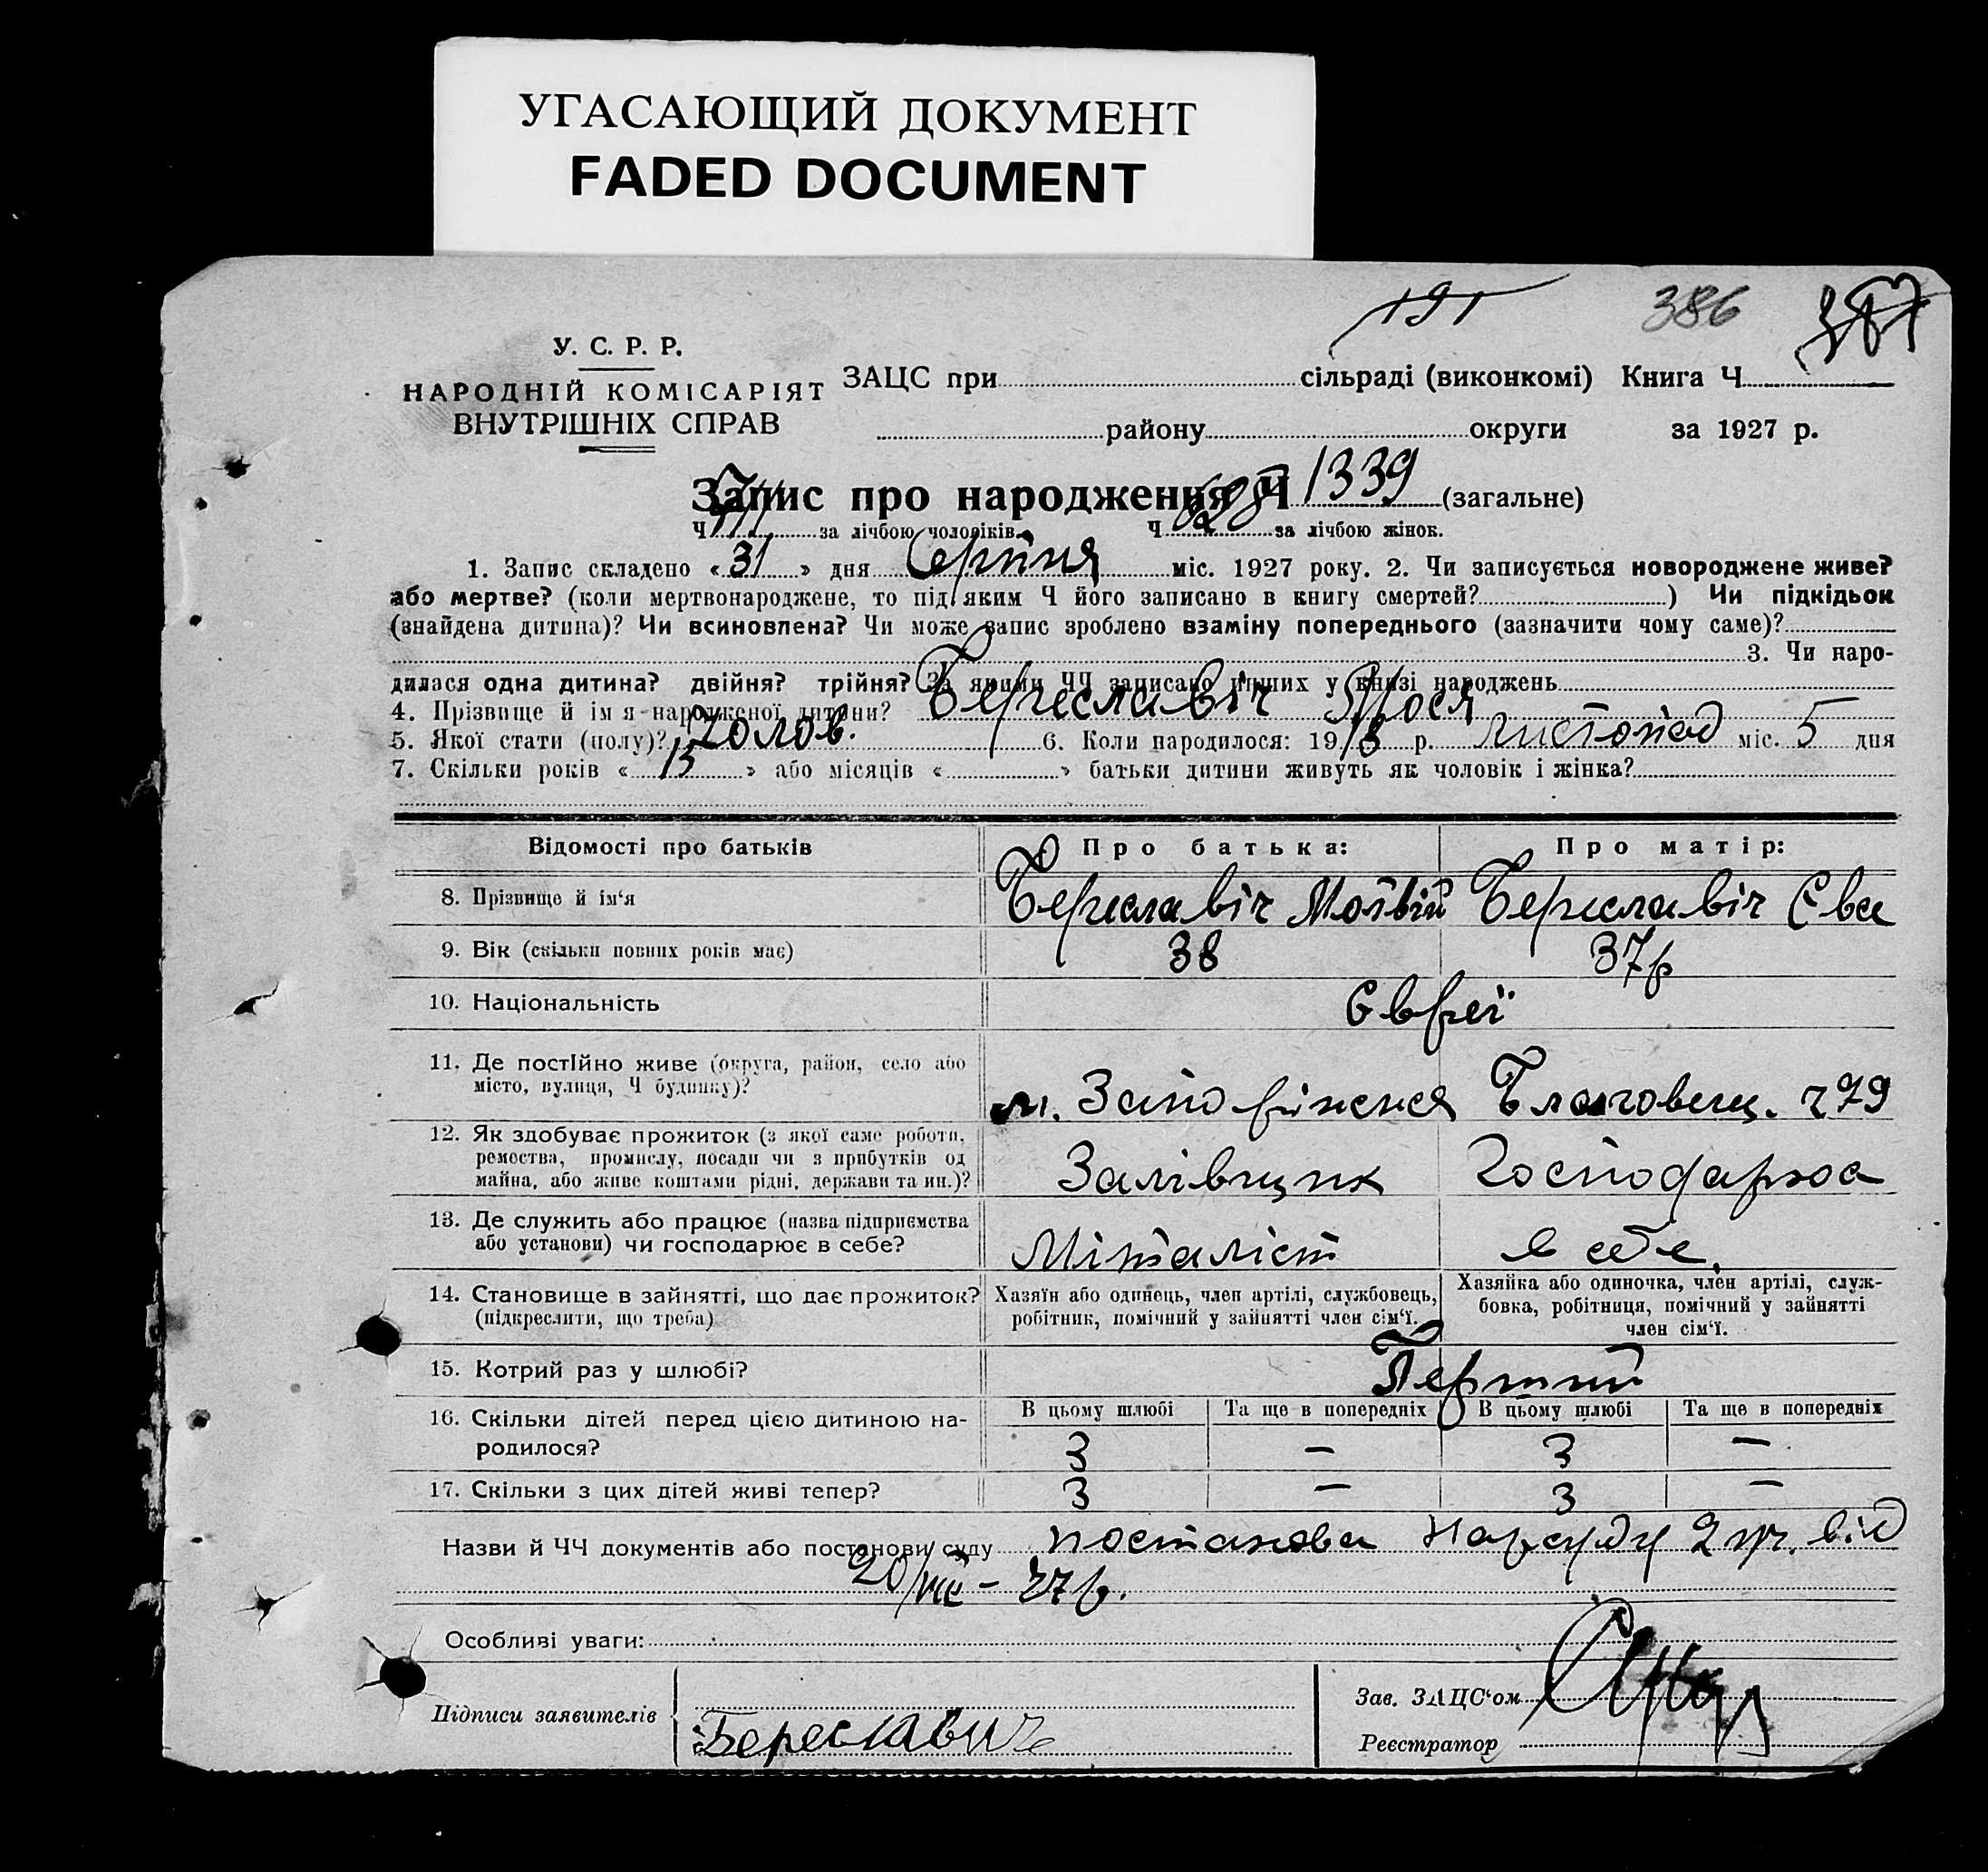 УГАСАЮЩИЙ ДОКУМЕНТ
FADED DOCUMENT
191 386 387
У. С. Р. Р.
НАРОДНІЙ КОМІСАРІЯТ
ВНУТРІШНІХ СПРАВ
ЗАЦС при сільраді (виконкомі) Книга Ч.
району округи за 1927 р.
Запис про народження Ч 1339 (загальне)
Ч 711 за лічбою чоловіків. Ч 628 за лічбою жінок.
1. Запис складено «31» дня Серпня міс. 1927 року. 2. Чи записується новороджене живе?
або мертве? (коли мертвонароджене, то під яким Ч його записано в книгу смертей? ) Чи підкідьок
(знайдена дитина)? Чи всиновлена? Чи може запис зроблено взаміну попереднього (зазначити чому саме)?
3. Чи наро-
дилася одна дитина? двійня? трійня? За якими ЧЧ записано инших у книзі народжень
4. Прізвище й ім я народженої дитини? Береславіч
5. Якої стати (полу)? Чолов. 6. Коли народилося: 1918 р. Листопад міс. 5 дня
7. Скільки років «15» або місяців « » батьки дитини живуть як чоловік і жінка?
Відомості про батьків Про батька: Про матір:
8. Прізвище й ім'я Береславіч Мотвій Береславіч Єва
9. Вік (скільки повних років має) 38 37р
10. Національність Єврєї
11. Де постійно живе (округа, район, село або
місто, вулиця, Ч будинку)?
м. Запоріжжя Благовещ. ч 79
12. Як здобуває прожиток (з якої саме роботи,
ремества, промислу, посади чи з прибутків од
майна, або живе коштами рідні, держави та ин.)?
Залівщик Господарка
13. Де служить або працює (назва підприємства
або установи) чи господарює в себе?
Міталіст в себе
14. Становище в зайнятті, що дає прожиток?
(підкреслити, що треба)
Хазяїн або одинець, член артілі, службовець,
робітник, помічний у зайнятті член сім'ї.
Хазяйка або одиночка, член артілі, служ-
бовка, робітниця, помічний у зайнятті
член сім'ї.
15. Котрий раз у шлюбі? Перший
16. Скільки дітей перед цією дитиною на-
родилося?
В цьому шлюбі Та ще в попередніх В цьому шлюбі Та ще в попередніх
3 — 3 —
17. Скільки з цих дітей живі тепер? 3 — 3 —
Назви й ЧЧ документів або постанови суду постанова Нарсуду 2 від
20/VIII - 27р.
Особливі уваги:
Підписи заявителів Береславич
Зав. ЗАЦС'ом
Реєстратор